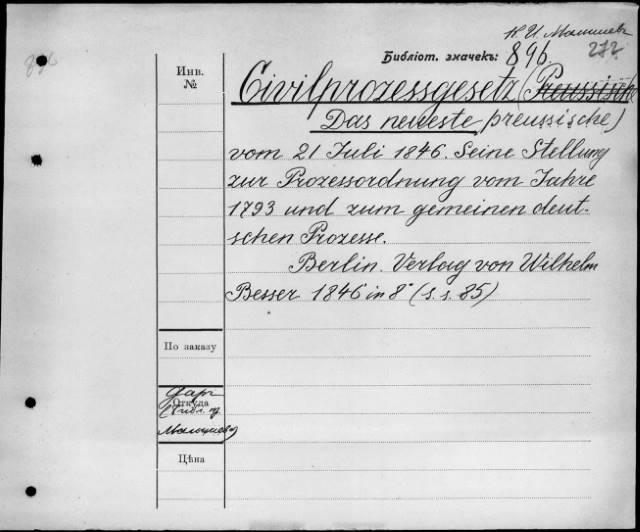 К. И. Малышевъ
272
896
Библіот. значекъ: 896
Инв.
№
Civilprozessgesetz (Preussische
Das neueste, preussische)
vom 21 Juli 1846. Seine Stellung
zur Prozessordnung vom Jahre
1793 und zum gemeinen deut-
schen Prozesse.
Berlin. Verlag von Wilhelm
Besser 1846 in 8° (s. s. 85)
По заказу
Даръ
Откуда
Малышева
Цѣна